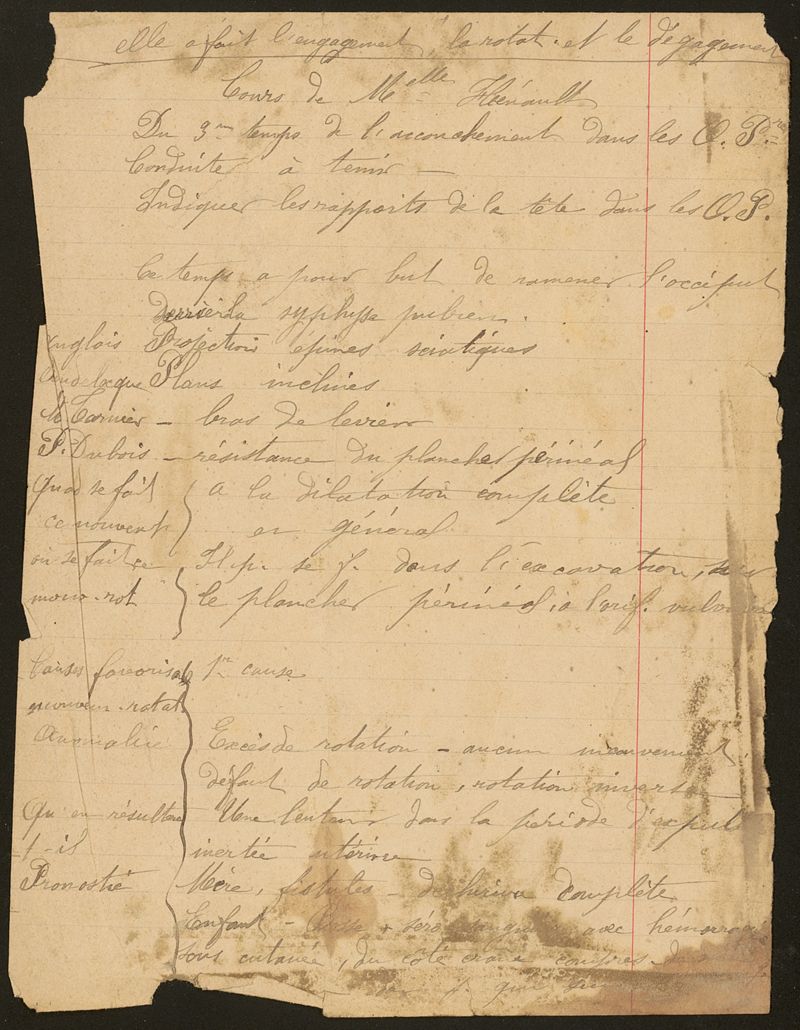 elle a fait l'engagement, la rotat. et le dégagement
Cours de Melle Hénault
Du 3me temps de l'accouchement dans les O. Pres
Conduite à tenir —
Indiquer les rapports de la tête dans les O.P.
Ce temps a pour but de ramener l'occéput
derrière la symphyse pubien.
Projection épines sciatiques
Baudelocque Plans inclinés
M Tarnier — bras de levier
P. Dubois — résistance du plancher périnéal
Quand se fait A la dilatation complète
ce mouvent en général
où se fait ce Il p. se f. dans l'excavation, sur
mouv. rot le plancher périnéal, à l'orif. vulvaire
Causes favorisat 1re cause
mouvem. rotat
Anomalie Excès de rotation — aucun mouvement
défaut de rotation, rotation inverse
Qu'en résultera Une lenteur dans la période d'expul
t-il inertie utérine
Pronostic Mère, fistules — déchirure complète
Enfant — Bosse séro sanguine avec hémorragie
sous cutanée, du côté crane compres. dans